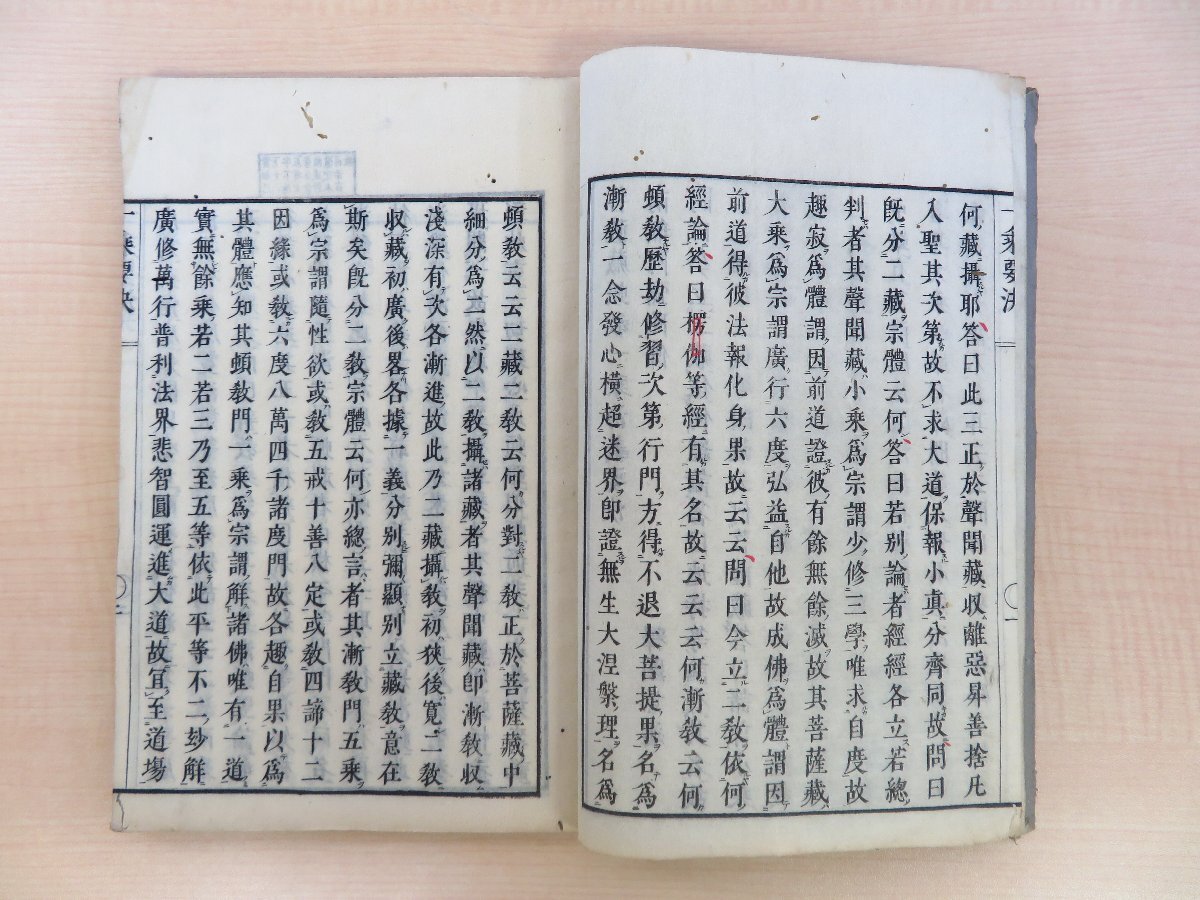 何藏攝耶答曰此三正於聲聞藏収離惡昇善捨凡
入聖其次第故不求大道保報小真分齊同故問曰
既分二藏宗體云何答曰若別論者經經各立若總
判者其聲聞藏小乘爲宗謂少修三學唯求自度故
趣寂爲體謂因前道證彼有餘無餘滅故其菩薩藏
大乘爲宗謂廣行六度弘益自他故成佛爲體謂因
前道得彼法報化身果故云云問曰今立二敎依何
經論答曰楞伽等經有其名故云云云何漸敎云何
頓敎歷劫修習次第行門方得不退大菩提果名爲
漸敎一念發心橫超迷界卽證無生大涅槃理名爲
一乘要決
一
頓敎云云二藏二敎云何分對二敎正於菩薩藏中
細分爲二然以二敎攝諸藏者其聲聞藏卽漸敎収
淺深有次各漸進故此乃二藏攝敎初狹後寬二敎
収藏初廣後畧各據一義分別彌顯別立藏敎意在
斯矣旣分二敎宗體云何亦總言者其漸敎門五乘
爲宗謂隨性欲或敎五戒十善八定或敎四諦十二
因緣或敎六度八萬四千諸度門故各趣自果以爲
其體應知其頓敎門一乘爲宗謂解諸佛唯有一道
實無餘乘若二若三乃至五等依此平等不二妙解
廣修萬行普利法界悲智圓運進大道故冝至道場
一乘要決